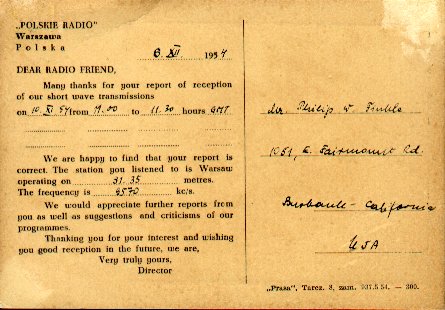 „POLSKIE RADIO"
Warszawa
Polska
6. XII 1954
DEAR RADIO FRIEND,
Many thanks for your report of reception
of our short wave transmissions
on 10. XI 54 from 11.00 to 11.30 hours GMT
We are happy to find that your report is
correct. The station you listened to is Warsaw
operating on 31.35 metres.
The frequency is 9570 kc/s.
We would appreciate further reports from
you as well as suggestions and criticisms of our
programmes.
Thanking you for your interest and wishing
you good reception in the future, we are,
Very truly yours,
Director
Philip W.
1051, E. Fairmount Rd.
Burbank - California
USA
„Prasa", Tarcz. 8, zam. 937.5 54. — 300.